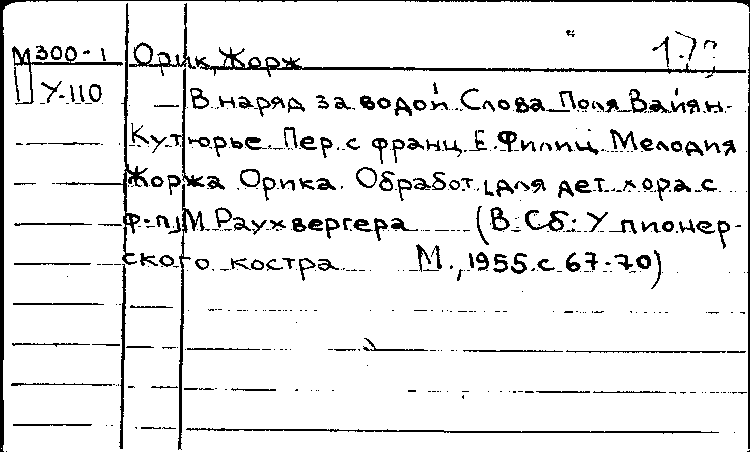 М300-1 Орик, Жорж
У-110 В наряд за водой. Слова Поля Вайян-
Кутюрье. Пер. с франц. Е. Филиц. Мелодия
Жоржа Орика. Обработ. [для дет. хора с
ф-п] М. Раухвергера (В сб: У пионер-
ского костра М., 1955. с 67-70)